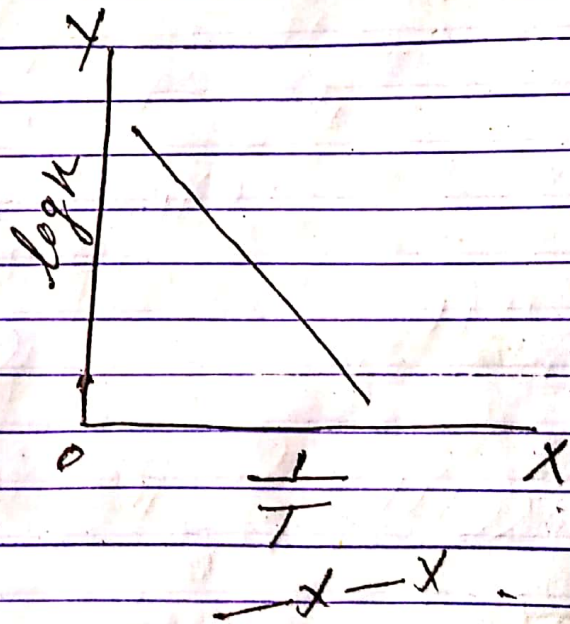 Y
log k
O
X
1
T
—x—x